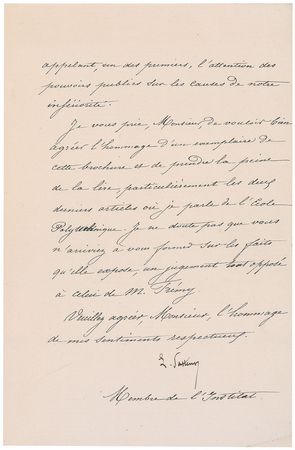 appelant, un des premiers, l'attention des
pouvoirs publics sur les causes de notre
infériorité.
Je vous prie, Monsieur, de vouloir bien
agréer l'hommage d'un exemplaire de
cette brochure et de prendre la peine
de la lire, particulièrement les deux
derniers articles où je parle de l'Ecole
Polytechnique. Je ne doute pas que vous
n'arriviez à vous former sur les faits
qu'elle expose, un jugement tout opposé
à celui de M. Frémy
Veuillez agréer, Monsieur, l'hommage
de mes sentiments respectueux.
L. Pasteur
Membre de l'Institut.